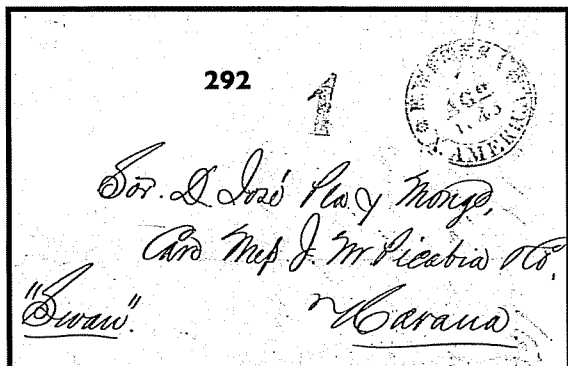 292
1
AGO
N. AMERICA
Sor. D. José Pla y Monge,
Care Mess J. M Picabia & Co,
"Swan".
Havana